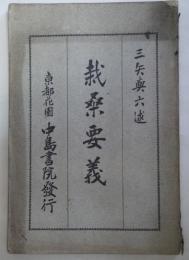 三矢與六述
栽桑要義
東都花園 中島書院發行